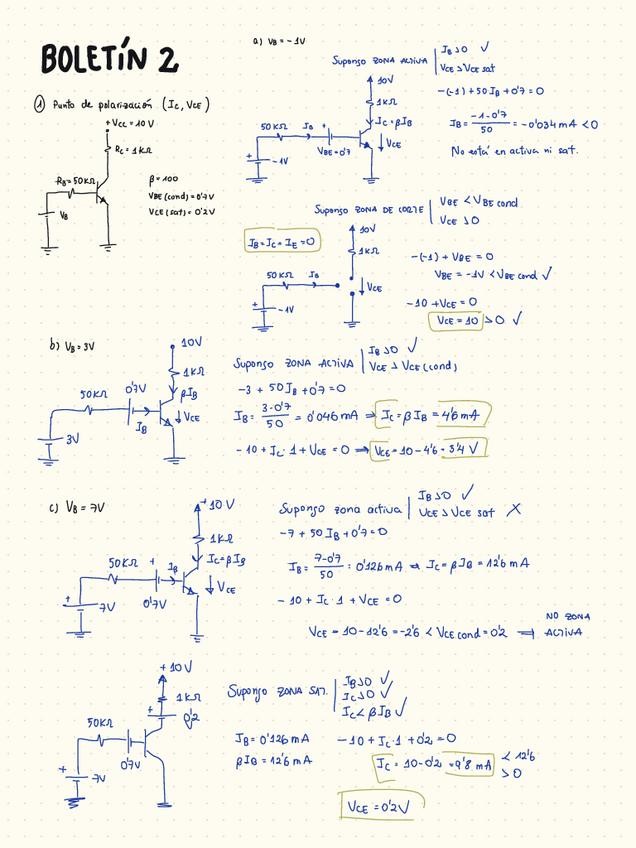 BOLETÍN 2
① Punto de polarización (Ic, VCE)
+Vcc = 10 V
Rc = 1KΩ
RB = 50KΩ
VB
β = 100
VBE (cond) = 0'7V
VCE (sat) = 0'2V
a) VB = -1V
Supongo ZONA ACTIVA
IB > 0 ✓
VCE > VCE sat
10V
1KΩ
Ic = βIB
50KΩ
IB
+
VCE
VBE = 0'7
+
-1V
-(-1) + 50 IB + 0'7 = 0
IB = -1-0'7 / 50 = -0'034 mA < 0
No está en activa ni sat.
Supongo ZONA DE CORTE
VBE < VBE cond
VCE > 0
IB = Ic = IE = 0
10V
1KΩ
50KΩ
IB
VCE
+
-1V
-(-1) + VBE = 0
VBE = -1V < VBE cond ✓
-10 + VCE = 0
VCE = 10 > 0 ✓
b) VB = 3V
10V
1KΩ
βIB
50KΩ
0'7V
IB
VCE
3V
Supongo ZONA ACTIVA
IB > 0 ✓
VCE > VCE (cond)
-3 + 50 IB + 0'7 = 0
IB = 3-0'7 / 50 = 0'046 mA ⇒ Ic = β IB = 4'6 mA
-10 + Ic · 1 + VCE = 0 ⇒ VCE = 10 - 4'6 = 5'4 V
c) VB = 7V
+10 V
1KΩ
Ic = βIB
50KΩ
+
IB
VCE
0'7V
+
7V
Supongo zona activa
IB > 0 ✓
VCE > VCE sat ✗
-7 + 50 IB + 0'7 = 0
IB = 7-0'7 / 50 = 0'126 mA ⇒ Ic = β IB = 12'6 mA
-10 + Ic · 1 + VCE = 0
VCE = 10 - 12'6 = -2'6 < VCE cond = 0'2 ⇒ NO ZONA ACTIVA
+10 V
1KΩ
+
0'2
50KΩ
0'7V
+
7V
Supongo ZONA SAT.
IB > 0 ✓
Ic > 0 ✓
Ic < β IB ✓
IB = 0'126 mA
βIB = 12'6 mA
-10 + Ic · 1 + 0'2 = 0
Ic = 10 - 0'2 = 9'8 mA
< 12'6
> 0
VCE = 0'2V